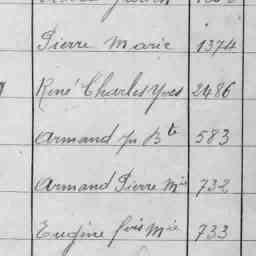 Pierre Marie 1374
René Charles Yves 2486
Armand Jn Bte 583
Armand Pierre Mie 732
Eugène frois Mie 733